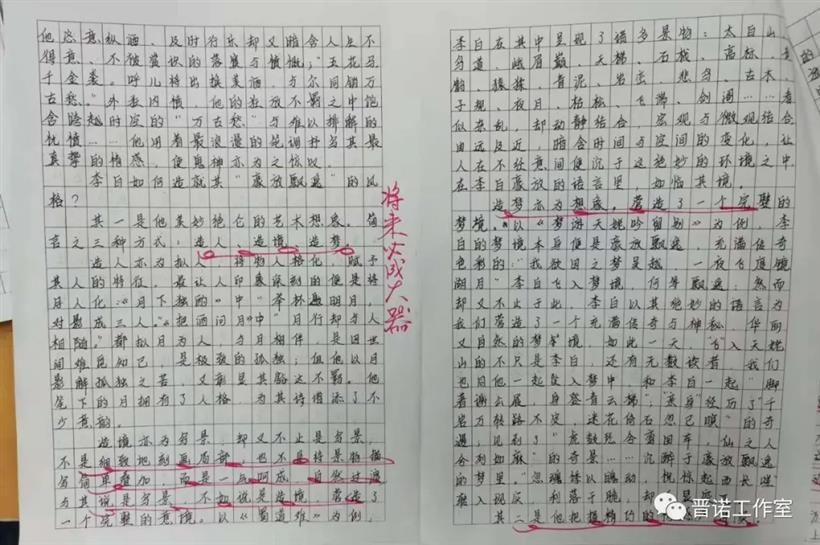 他恣意纵酒、及时行乐却又暗含人生不
得意、不被赏识的落寞与愤慨;"五花马
千金裘。呼儿将出换美酒,与尔同销万
古愁。"外表内愤,他的狂放不羁之中饱
含跨越时空的"万古愁"与难以排解的
忧愤……他用着最浪漫的笔调抒写其最
真挚的情感,使鬼神亦为之惊叹。
李白如何造就其"豪放飘逸"的风
格?
其一是他美妙绝伦的艺术想象。简
言之三种方式:造人、造境、造梦。
造人亦为拟人,将物人格化,赋予
其人的特征,最让人印象深刻的便是将
月人化:《月下独酌》中"举杯邀明月,
对影成三人。"《把酒问月》中"月行却与人
相随。"都拟月为人,与月相伴,是因世
间难觅知己,是极致的孤独;但他以月
影解孤独之苦,又彰显其豁达不羁。他
笔下的月拥有了人格,为其诗酒添了不
少意韵。
造境亦为写景,却又不止是写景,
不是细致地刻画局部,也不是将景物描
写简单叠加,而是一气呵成,自然过渡
与其说是写景,不如说是造境,营造了
一个完整的意境。以《蜀道难》为例,
将来必成大器
李白在其中呈现了诸多景物:太白山
鸟道、峨眉巅、天梯、石栈、高标、黄
鹤、猿猱、青泥、岩峦、悲鸟、古木、
子规、夜月、枯松、飞湍、剑阁……看
似杂乱,却动静结合,宏观与微观结合
由远及近,暗含时间与空间的变化,让
人在不经意间便沉于这绝妙的环境之中
在李白豪放的语言里,如临其境。
造梦亦为想象。营造了一个完整的
梦境。以《梦游天姥吟留别》为例,李
白的梦境本身便是豪放飘逸、充满传奇
色彩的:"我欲因之梦吴越,一夜飞度镜
湖月"李白飞入梦境,何等飘逸;然而
却又不止于此,李白以其绝妙的语言为
我们营造了一个充满传奇与神秘,华丽
又自然的梦境,如此一天,飞入天姥
山的不只是李白,还有无数读者,我们
也同他一起坠入梦中,和李白一起"脚
着谢公屐,身登青云梯","亲身"经历了"千
岩万转路不定,迷花倚石忽已暝"的奇
遇,见到了"虎鼓瑟兮鸾回车,仙之人
兮列如麻"的奇景……沉醉于豪放飘逸
的梦里。"忽魂悸以魄动,恍惊起而长嗟
跌入现实,利落干脆,却
其二是他把握精巧的
晋诺工作室